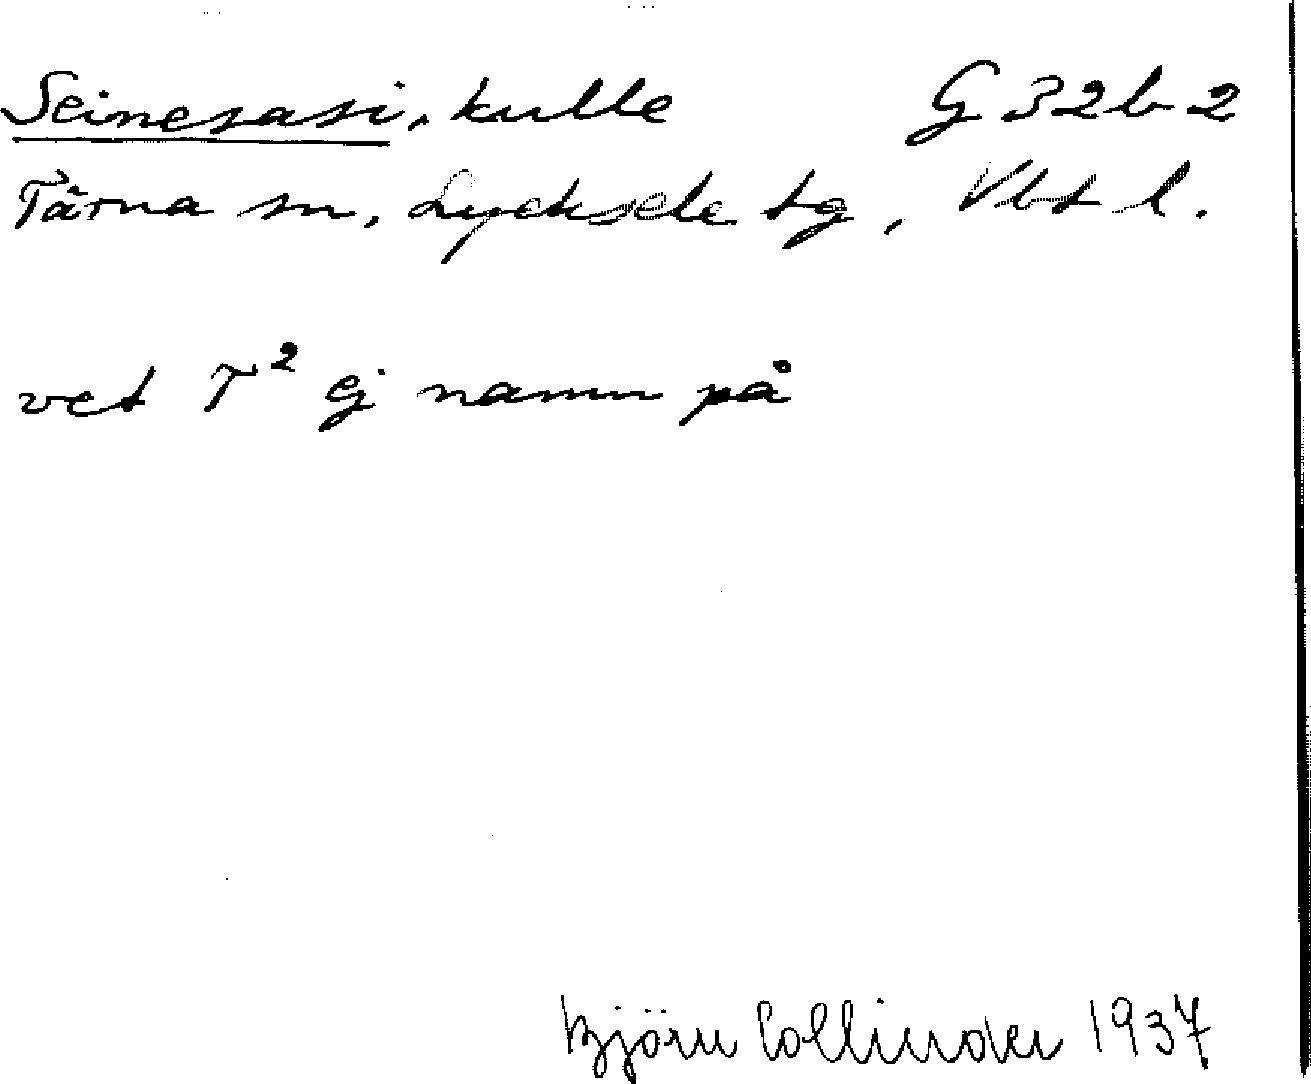 Seinesasi, kulle G 32b 2
Tärna sn, Lycksele tg, Vbt l.
vet T² ej namn på
Björn Collinder 1937